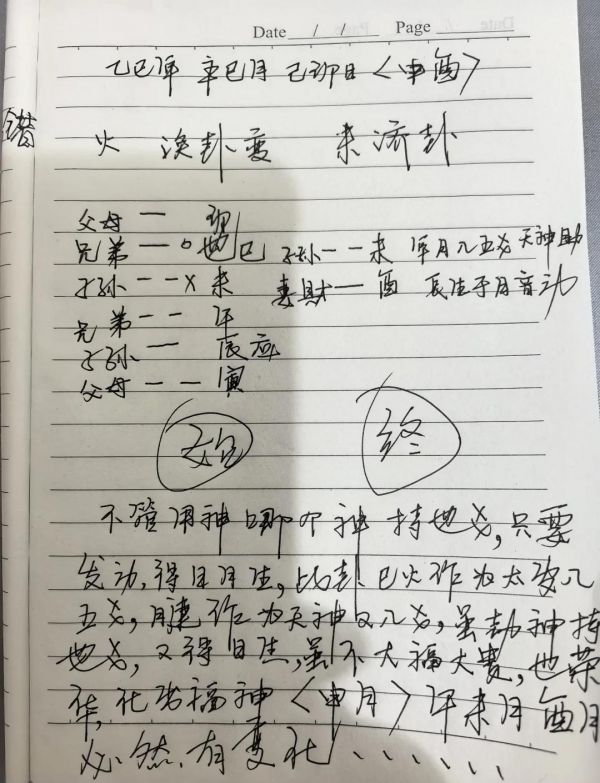 Date / / Page
乙巳年 辛巳月 己卯日〈申酉〉
错
火 涣卦变 未济卦
父母 一 卯
兄弟 一 o 世巳 子孙 - - 未 年月入五爻 天神助
子孙 - - x 未 妻财 一 酉 长生于月音动
兄弟 - - 午
子孙 一 辰应
父母 - - 寅
始 终
不管用神哪个神持世爻,只要
发动,得日月生,比卦巳火作为太岁入
五爻,月建作为天神又入爻,虽劫神持
世爻,又得日生,虽不大福大贵,也荣
华,化出福神〈申月〉午未月酉月
必然有变化......